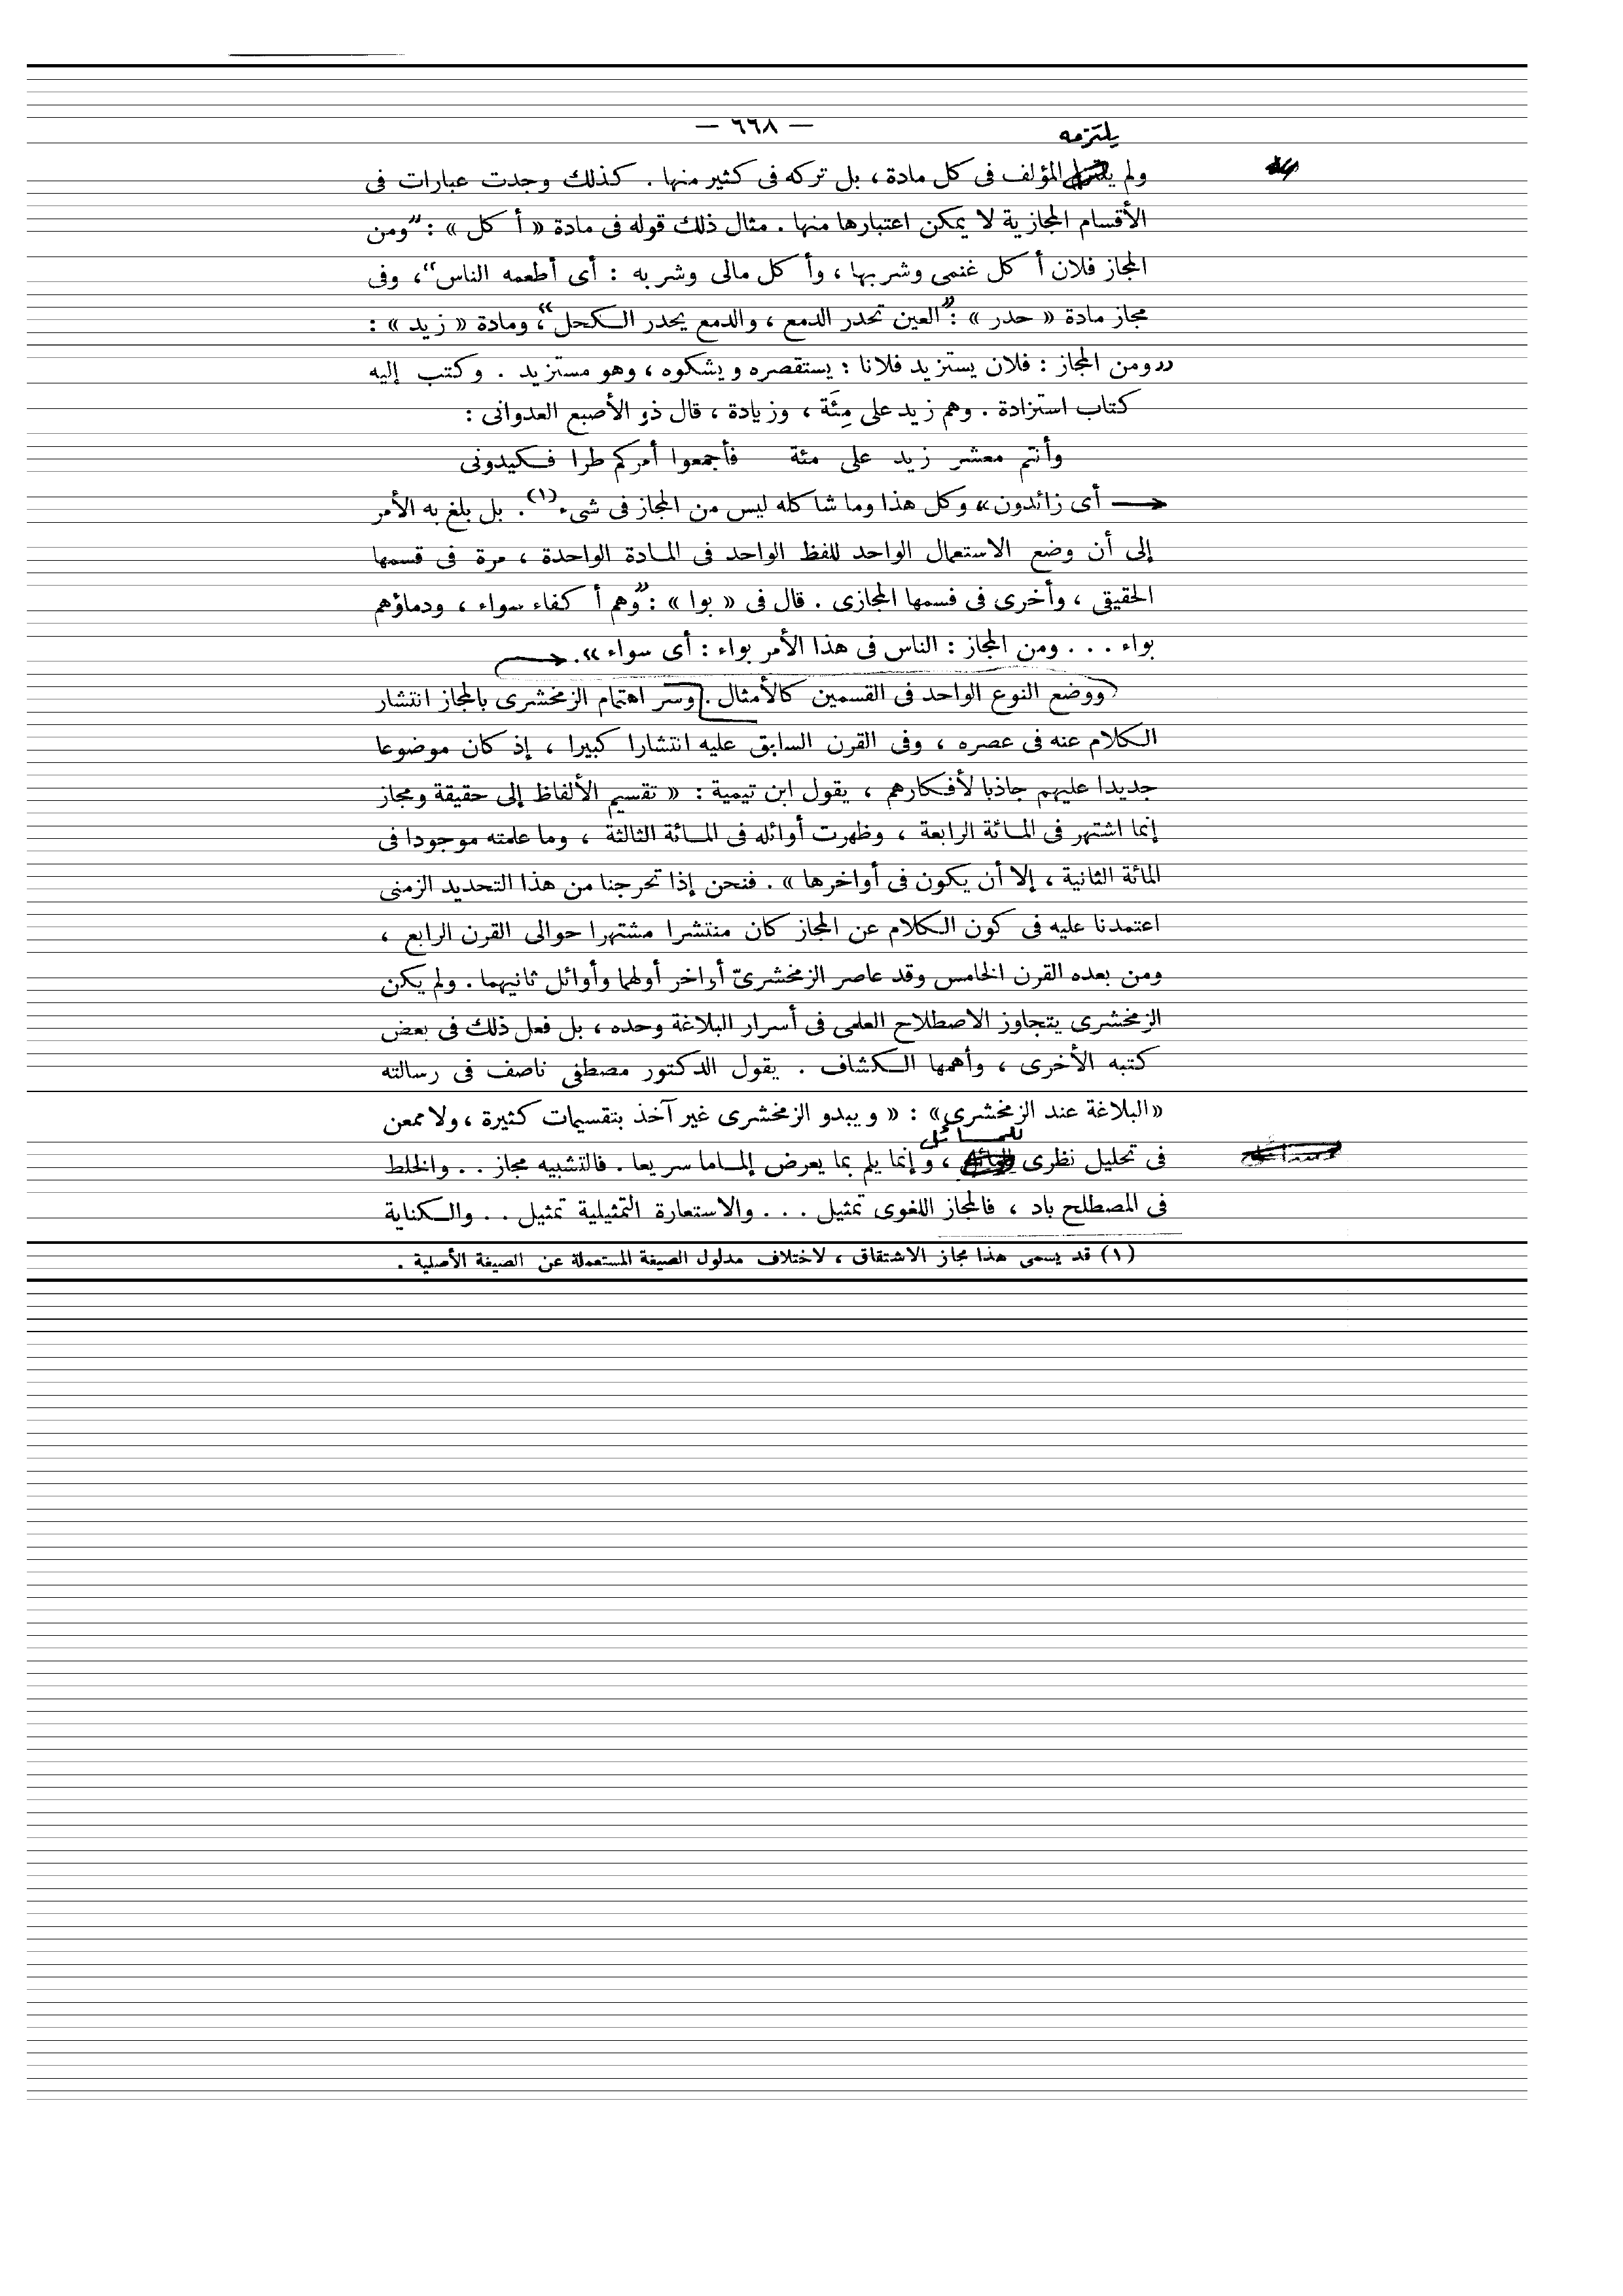 — ٦٦٨ —
يلتزمه
ولم المؤلف فى كل مادة ، بل تركه فى كثير منها . كذلك وجدت عبارات فى
الأقسام المجازية لا يمكن اعتبارها منها . مثال ذلك قوله فى مادة « أكل » : "ومن
المجاز فلان أكل غنمى وشربها ، وأكل مالى وشربه : أى أطعمه الناس" ، وفى
مجاز مادة « حدر » : "العين تحدر الدمع ، والدمع يحدر الكحل" ، ومادة « زيد » :
"ومن المجاز : فلان يستزيد فلانا : يستقصره ويشكوه ، وهو مستزيد . وكتب إليه
كتاب استزادة . وهم زيد على مِئَة ، وزيادة ، قال ذو الأصبع العدوانى :
وأنتم معشر زيد على مئة فأجمعوا أمركم طرا فكيدونى
أى زائدون» وكل هذا وما شاكله ليس من المجاز فى شىء (١) . بل بلغ به الأمر
إلى أن وضع الاستعمال الواحد للفظ الواحد فى المادة الواحدة ، مرة فى قسمها
الحقيقى ، وأخرى فى قسمها المجازى . قال فى « بوا » : "وهم أكفاء سواء ، ودماؤهم
بواء . . . ومن المجاز : الناس فى هذا الأمر بواء : أى سواء » .
ووضع النوع الواحد فى القسمين كالأمثال . وسر اهتمام الزمخشرى بالمجاز انتشار
الكلام عنه فى عصره ، وفى القرن السابق عليه انتشارا كبيرا ، إذ كان موضوعا
جديدا عليهم جاذبا لأفكارهم ، يقول ابن تيمية : « تقسيم الألفاظ إلى حقيقة ومجاز
إنما اشتهر فى المائة الرابعة ، وظهرت أوائله فى المائة الثالثة ، وما علمته موجودا فى
المائة الثانية ، إلا أن يكون فى أواخرها » . فنحن إذا تحرجنا من هذا التحديد الزمنى
اعتمدنا عليه فى كون الكلام عن المجاز كان منتشرا مشتهرا حوالى القرن الرابع ،
ومن بعده القرن الخامس وقد عاصر الزمخشرىّ أواخر أولهما وأوائل ثانيهما . ولم يكن
الزمخشرى يتجاوز الاصطلاح العلمى فى أسرار البلاغة وحده ، بل فعل ذلك فى بعض
كتبه الأخرى ، وأهمها الكشاف . يقول الدكتور مصطفى ناصف فى رسالته
«البلاغة عند الزمخشرى» : « ويبدو الزمخشرى غير آخذ بتقسيمات كثيرة ، ولا ممعن
للمسائل
فى تحليل نظرى ، وإنما يلم بما يعرض إلماما سريعا . فالتشبيه مجاز . . والخلط
فى المصطلح باد ، فالمجاز اللغوى تمثيل . . . والاستعارة التمثيلية تمثيل . . والكناية
(١) قد يسمى هذا مجاز الاشتقاق ، لاختلاف مدلول الصيغة المستعملة عن الصيغة الأصلية .